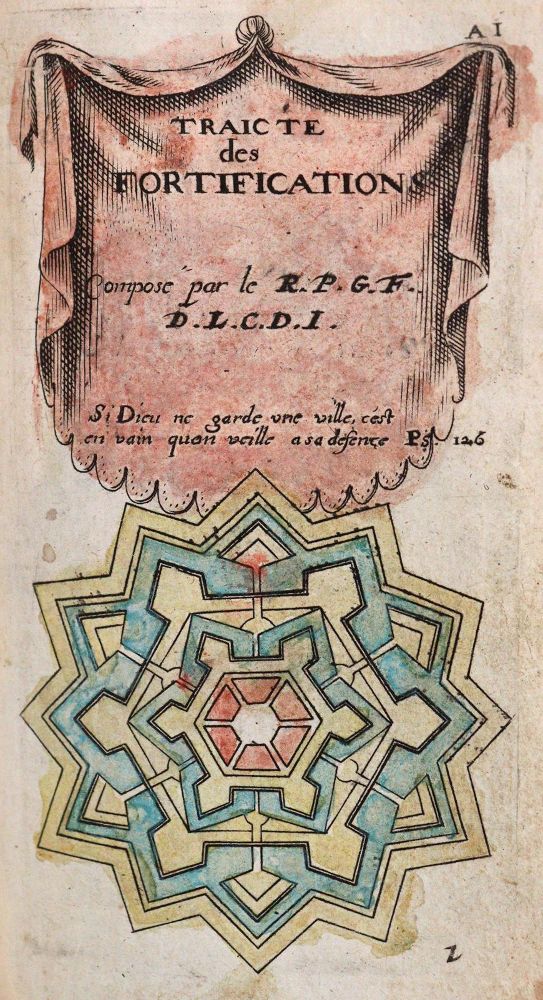 A I
TRAICTE
des
FORTIFICATIONS
Compose par le R.P.G.F.
D.L.C.D.I.
Si Dieu ne garde vne ville, cést
en vain quon veille a sa defençe Ps. 126
2